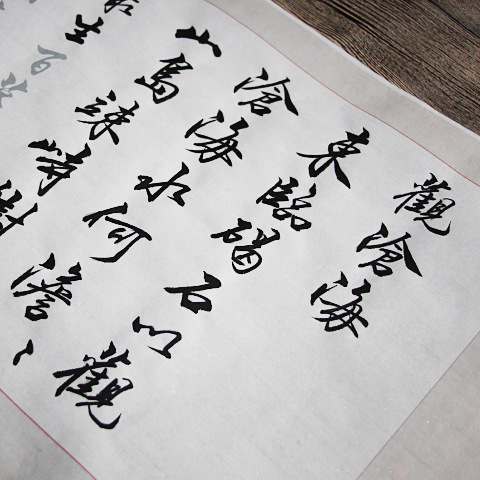 觀滄海
東臨碣石以觀
滄海水何澹〻
山島竦峙樹
生百